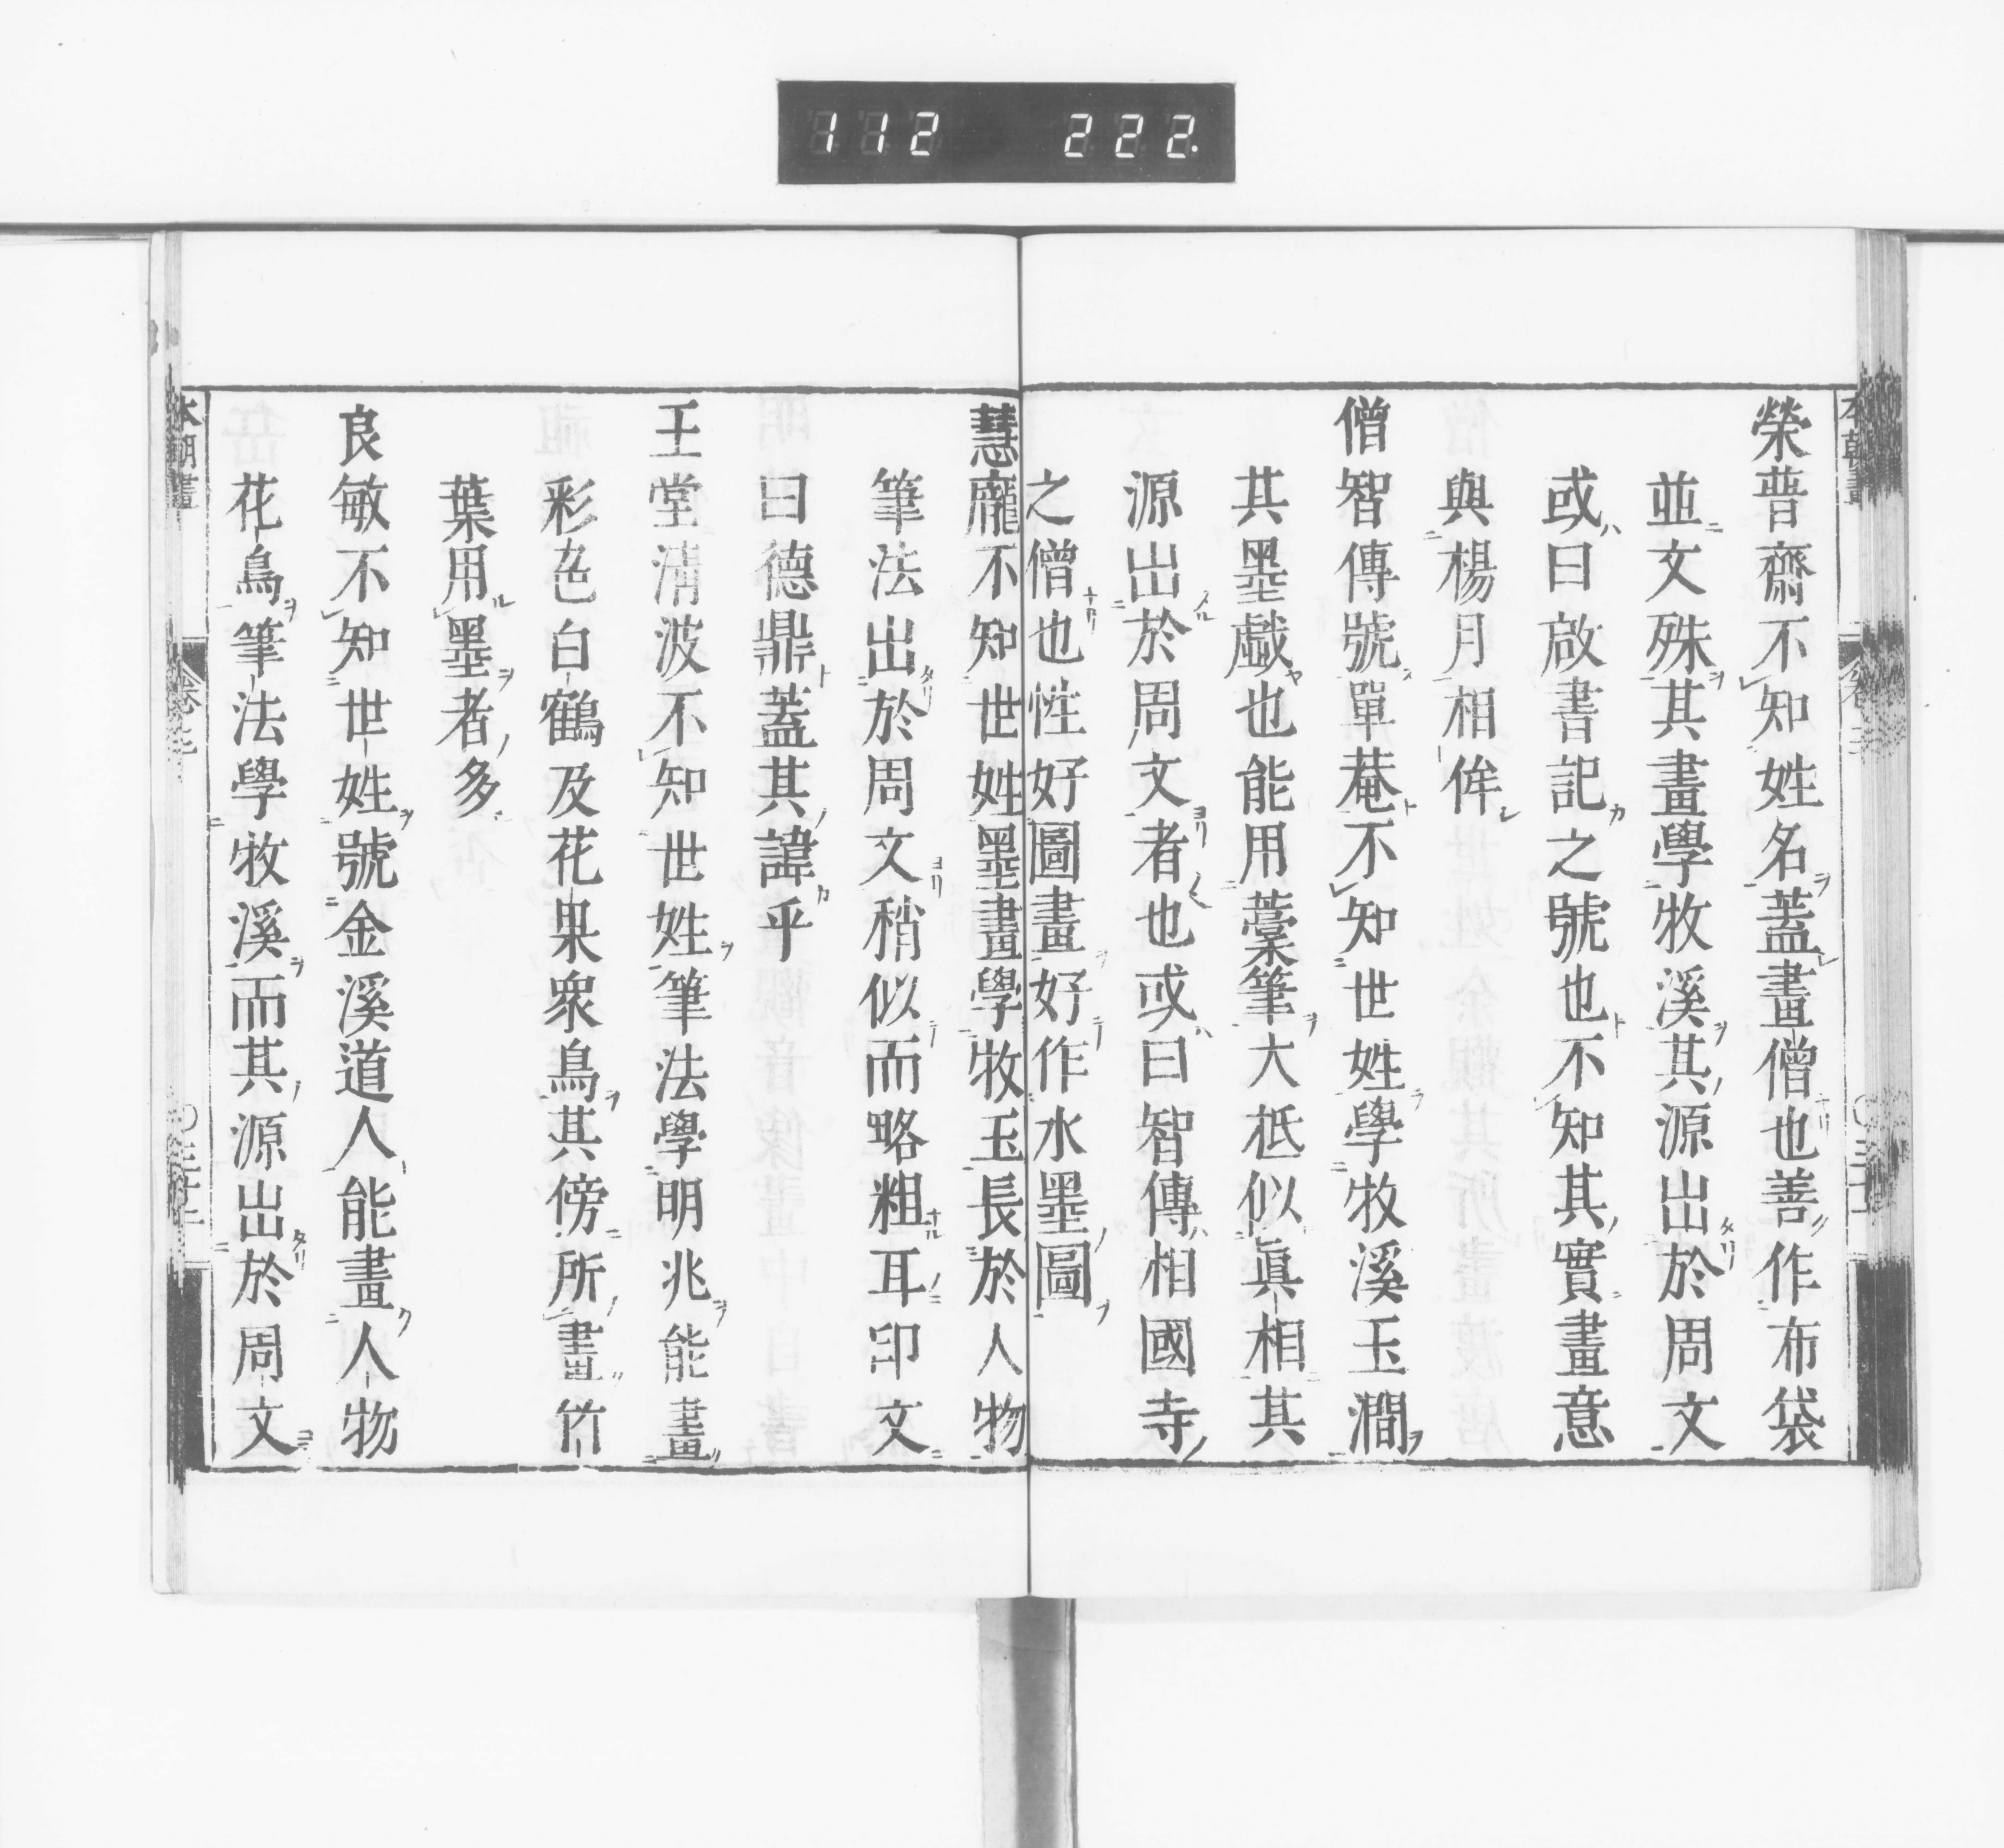 112 222.
榮普齋不知姓名蓋畫僧也善作布袋
並文殊其畫學牧溪其源出於周文
或曰啟書記之號也不知其實畫意
與楊月相侔
僧智傳號單菴不知世姓學牧溪玉澗
其墨戲也能用藁筆大柢似眞相其
源出於周文者也或曰智傳相國寺
之僧也性好圖畫好作水墨圖
慧龐不知世姓墨畫學牧玉長於人物
筆法出於周文稍似而略粗耳印文
曰德鼎蓋其諱乎
王堂清波不知世姓筆法學明兆能畫
彩色白鶴及花果衆鳥其傍所畫竹
葉用墨者多
良敏不知世姓號金溪道人能畫人物
花鳥筆法學牧溪而其源出於周文
本朝畫